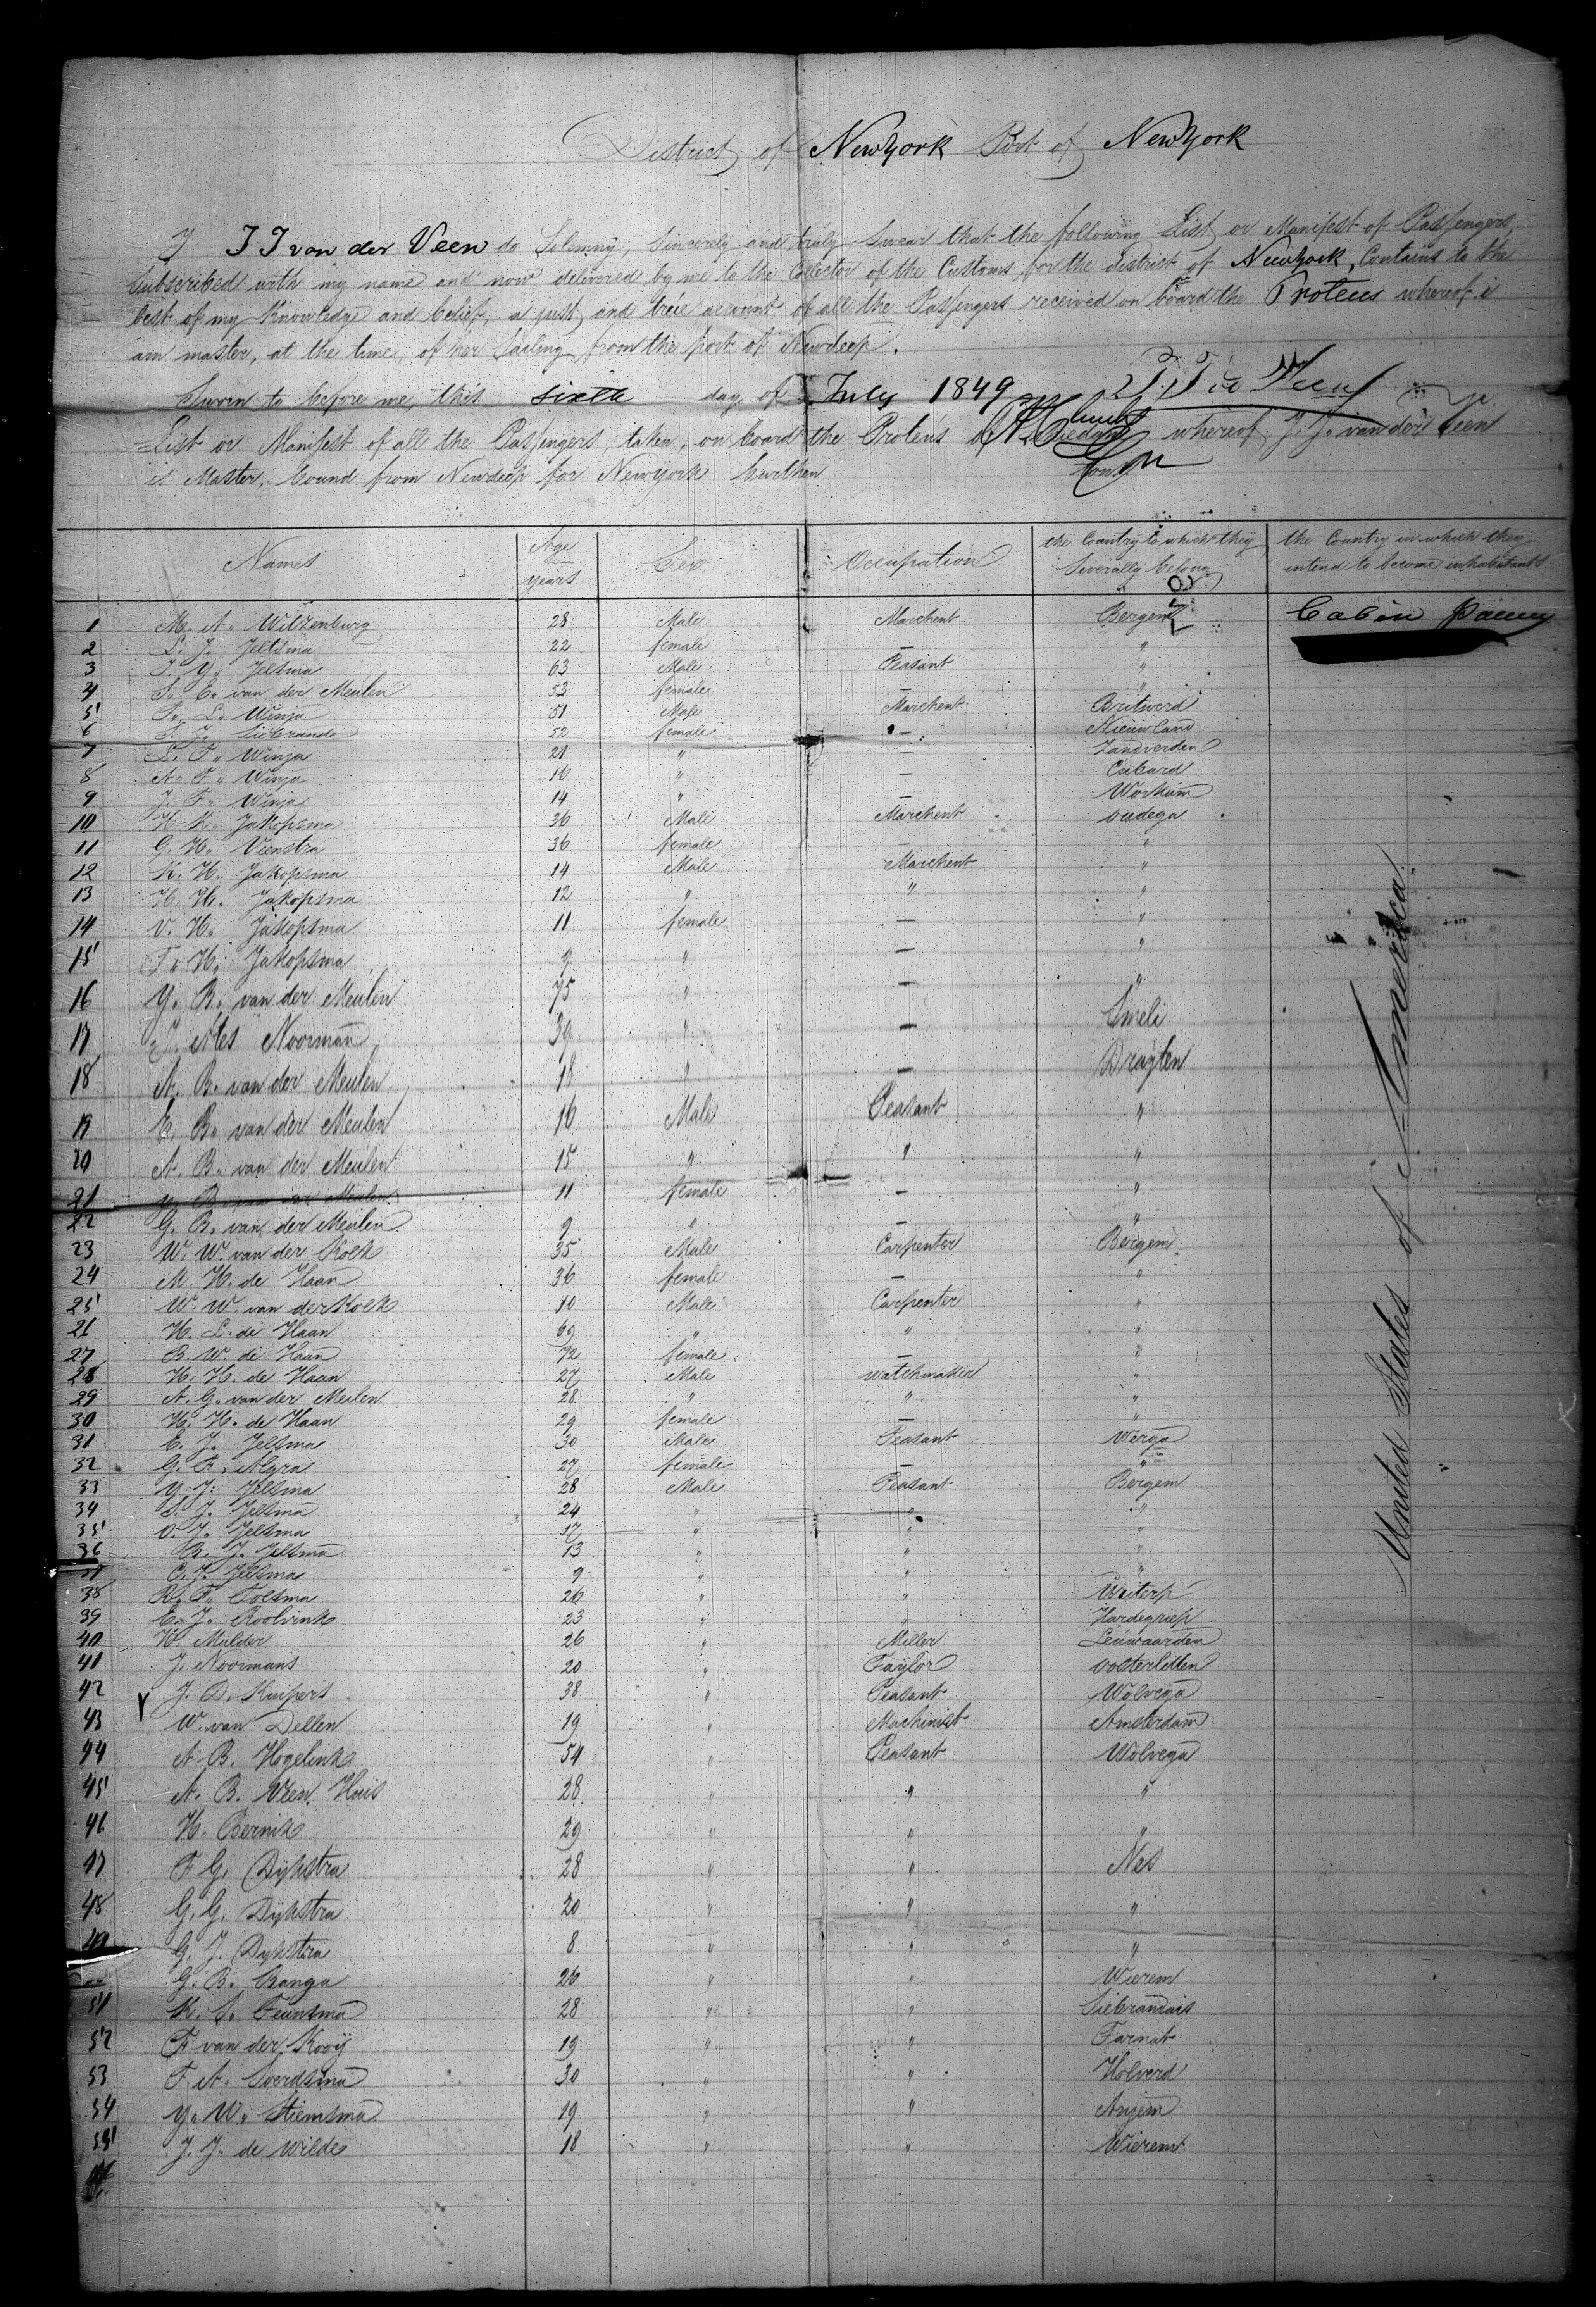 District of New York Port of New York
I J J van der Veen do Solemny, Sincerely and truly Swear that the following List or Manifest of Passengers,
Subscribed with my name and now delivered by me to the Collector of the Customs for the district of New York, Contains to the
best of my Knowledge and belief, a just and true account of all the Passengers received on board the Proteus whereof i
am master, at the time, of her Sailing from the port of Newdeep.
Sworn to before me, this sixth day of July 1849
List or Manifest of all the Passengers, taken, on board the Proteus whereof J. J. van der Veen
is Master, bound from Newdeep for New York burthen
Names Age years Sex Occupation the Country to which they Severally belong the Country in which they intend to become inhabitants
1 M. A. Witzenburg 28 Male Marchent Bergem Cabin
2 L. J. Jeltsma 22 female — "
3 J. Y. Jelsma 63 Male Peasant "
4 F. E. van der Meulen 53 female — "
5 F. L. Winja 51 Male Marchent Britwerd
6 T. J. Siebrande 52 female — Nieuwland
7 L. F. Winja 21 " — Zandverden
8 A. F. Winja 16 " — Cubard
9 J. F. Winja 14 " — Workum
10 H. K. Jakopsma 36 Male Marchent oudega
11 G. H. Veenstra 36 female — "
12 K. H. Jakopsma 14 Male Marchent "
13 H. H. Jakopsma 12 " " "
14 V. H. Jakopsma 11 female — "
15 T. H. Jakopsma 9 " — "
16 Y. B. van der Meulen 75 " — "
17 J. Ales Noorman 39 " — Smeli
18 A. B. van der Meulen 18 " — Dragten
19 E. B. van der Meulen 16 Male Peasant "
20 A. B. van der Meulen 15 " " "
21 Y. B. van der Meulen 11 female — "
22 G. B. van der Meulen 9 " — "
23 W. W. van der Kolk 35 Male Carpenter Bergem
24 M. H. de Haan 36 female — "
25 W. W. van der Kolk 10 Male Carpenter "
26 H. L. de Haan 69 " " "
27 B. W. de Haan 72 female — "
28 H. H. de Haan 27 Male watchmaker "
29 A. G. van der Meulen 28 " " "
30 H. H. de Haan 29 female — "
31 E. J. Jelsma 30 Male Peasant Werga
32 G. F. Algra 27 female — "
33 Y. J. Jelsma 28 Male Peasant Bergem
34 S. J. Jelsma 24 " " "
35 O. J. Jelsma 17 " " "
36 B. J. Jelsma 13 " " "
37 C. J. Jelsma 9 " " "
38 R. F. Tolsma 26 " " Uiterp
39 E. J. Roolvink 23 " " Hardegriep
40 W. Mulder 26 " Miller Leuwaarden
41 J. Noormans 20 " Taylor oosterletten
42 J. D. Kuipers 38 " Peasant Wolvega
43 W. van Dellen 19 " Machinist Amsterdam
44 A. B. Hogelink 54 " Peasant Wolvega
45 A. B. Veen Huis 28 " " "
46 H. Bernik 29 " " "
47 F. G. Dijkstra 28 " " Nes
48 G. G. Dijkstra 20 " " "
49 G. J. Dijkstra 8 " " "
G. B. Banga 26 " " Wierem
51 K. S. Teunsma 28 " "
52 F van der Kooij 19 " "
53 F. A. Soerdsma 30 " " Holverd
54 Y. W. Stiemsma 19 " " Anjem
55 J. J. de Wilde 18 " " Wierem
United States of America.